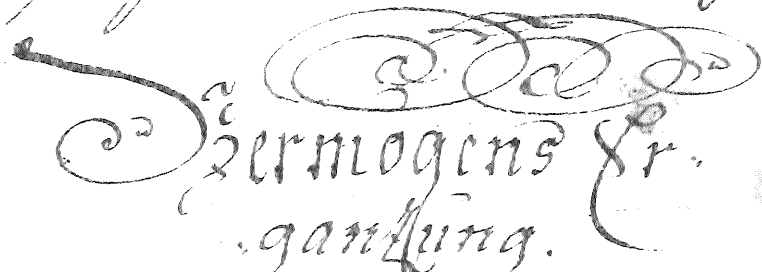 Vermogens Er.
gantzung.